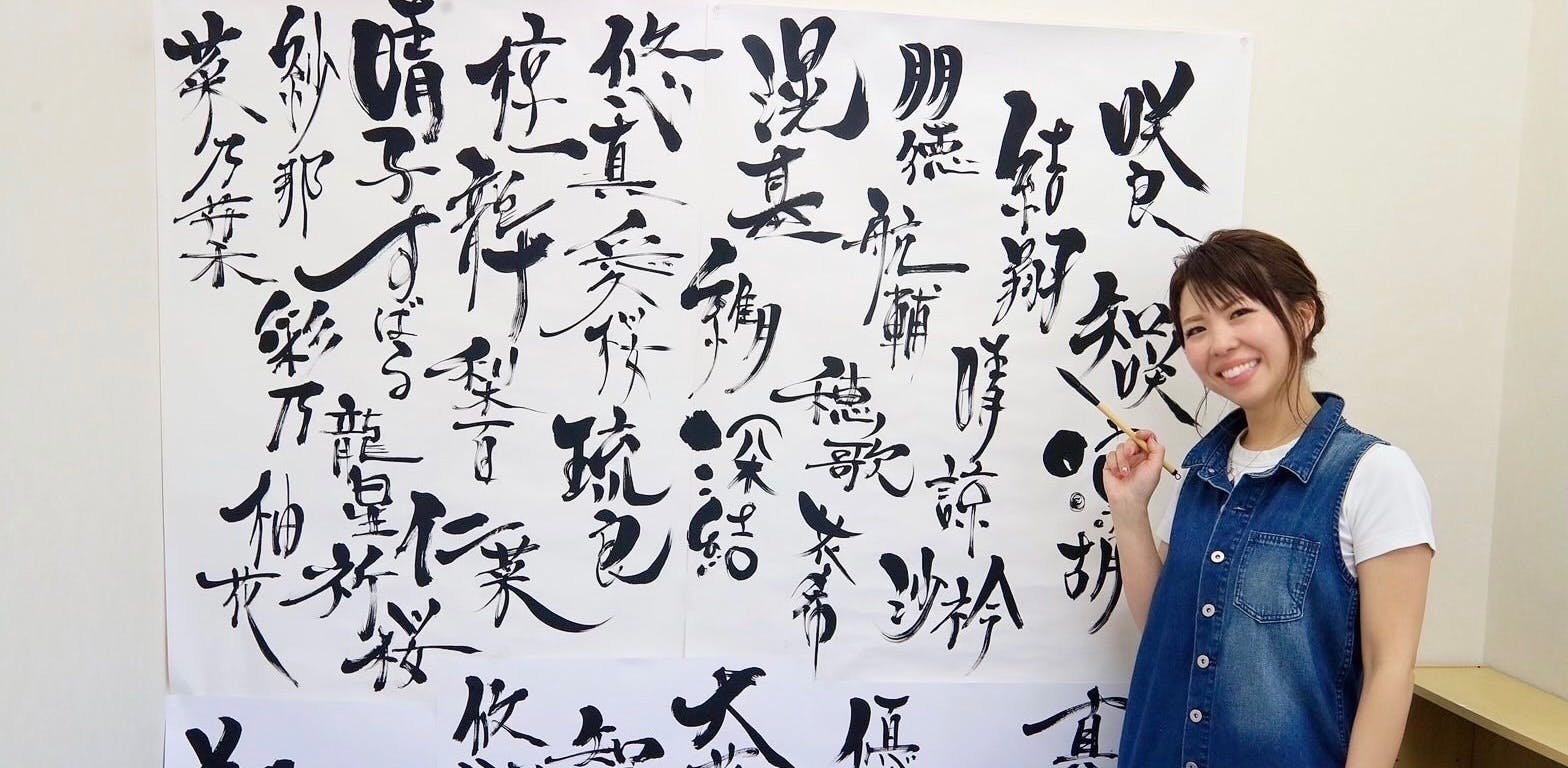 咲良
知咲
胡
結翔
朋徳
航輔
晴
諒
沙衿
滉基
穂歌
衣希
維
深結
悠真
愛桜
琉良
椋一
龍斗
梨百
仁菜
晴子
すばる
龍皇
祈桜
紗那
彩乃
柚花
菜乃葉
真
優
大
知
悠